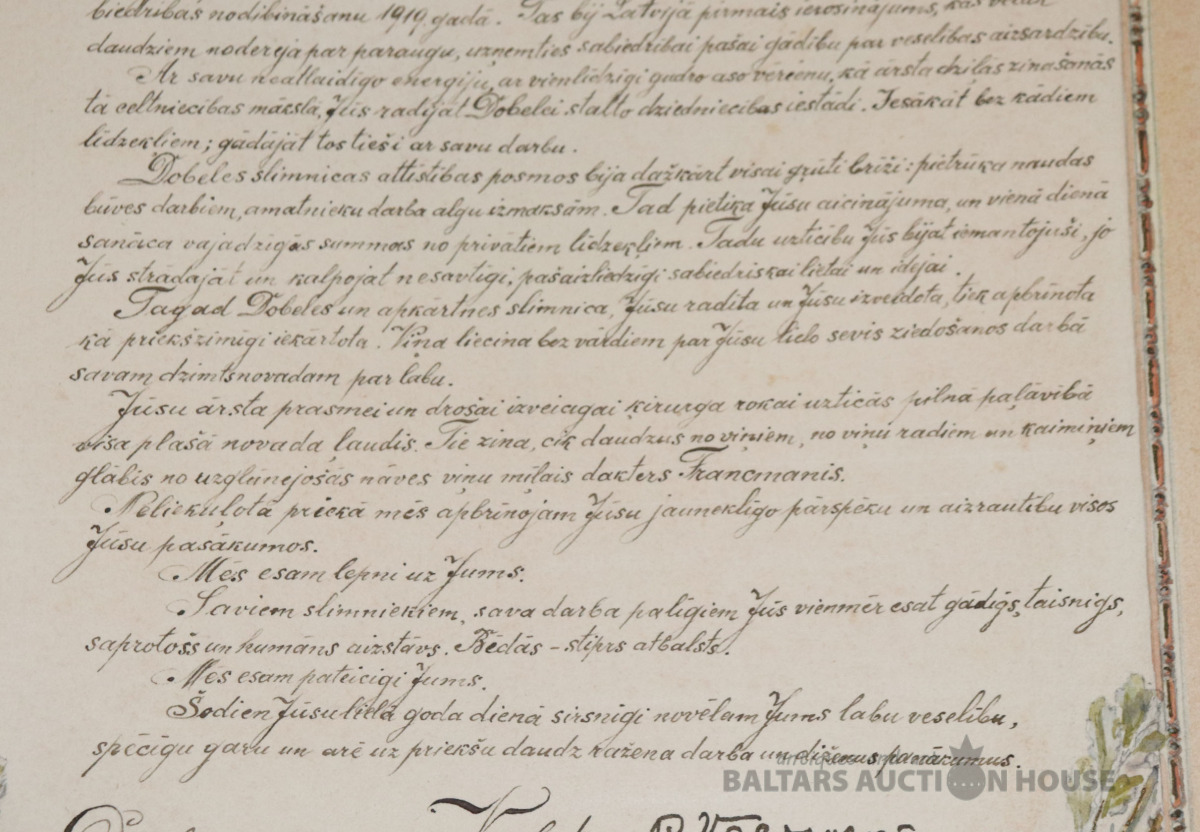 biedrības nodibināšanu 1919. gadā. Tas bij Latvijā pirmais ierosinājums, kas vēlāk
daudziem noderēja par paraugu, uzņemties sabiedrībai pašai gādību par veselības aizsardzību.
Ar savu neatlaidīgo enerģiju, ar vienlīdzīgi gudro aso vērienu, kā ārsta dziļās zināšanās
tā celtniecības mākslā, Jūs radījāt Dobelei stalto dziedniecības iestādi. Iesākāt bez kādiem
līdzekļiem; gādājāt tos tieši ar savu darbu.
Dobeles slimnīcas attīstības posmos bija dažkārt visai grūti brīži: pietrūka naudas
būves darbiem, amatnieku darba algu izmaksām. Tad pietika Jūsu aicinājuma, un vienā dienā
sanāca vajadzīgās summas no privātiem līdzekļiem. Tādu uzticību Jūs bijāt iemantojuši, jo
Jūs strādājāt un kalpojāt nesavtīgi, pašaizliedzīgi sabiedriskai lietai un idejai.
Tagad Dobeles un apkārtnes slimnīca, Jūsu radīta un Jūsu izveidota, tiek apbrīnota
kā priekšzīmīgi iekārtota. Viņa liecina bez vārdiem par Jūsu lielo sevis ziedošanos darbā
savam dzimtsnovadam par labu.
Jūsu ārsta prasmei un drošai izveicīgai ķirurga rokai uzticas pilnā paļāvībā
visa plašā novada ļaudis. Tie zina, cik daudzus no viņiem, no viņu radiem un kaimiņiem
glābis no uzglūnējošās nāves viņu mīļais dakters Francmanis.
Neliekuļotā priekā mēs apbrīnojam Jūsu jauneklīgo pārspēku un aizrautību visos
Jūsu pasākumos.
Mēs esam lepni uz Jums.
Saviem slimniekiem, sava darba palīgiem Jūs vienmēr esat gādīgs, taisnīgs,
saprotošs un humāns aizstāvs. Bēdās – stiprs atbalsts.
Mēs esam pateicīgi Jums.
Šodien Jūsu lielā goda dienā sirsnīgi novēlam Jums labu veselību,
spēcīgu garu un arē uz priekšu daudz ražena darba un diženus panākumus.
BALTARS AUCTION HOUSE